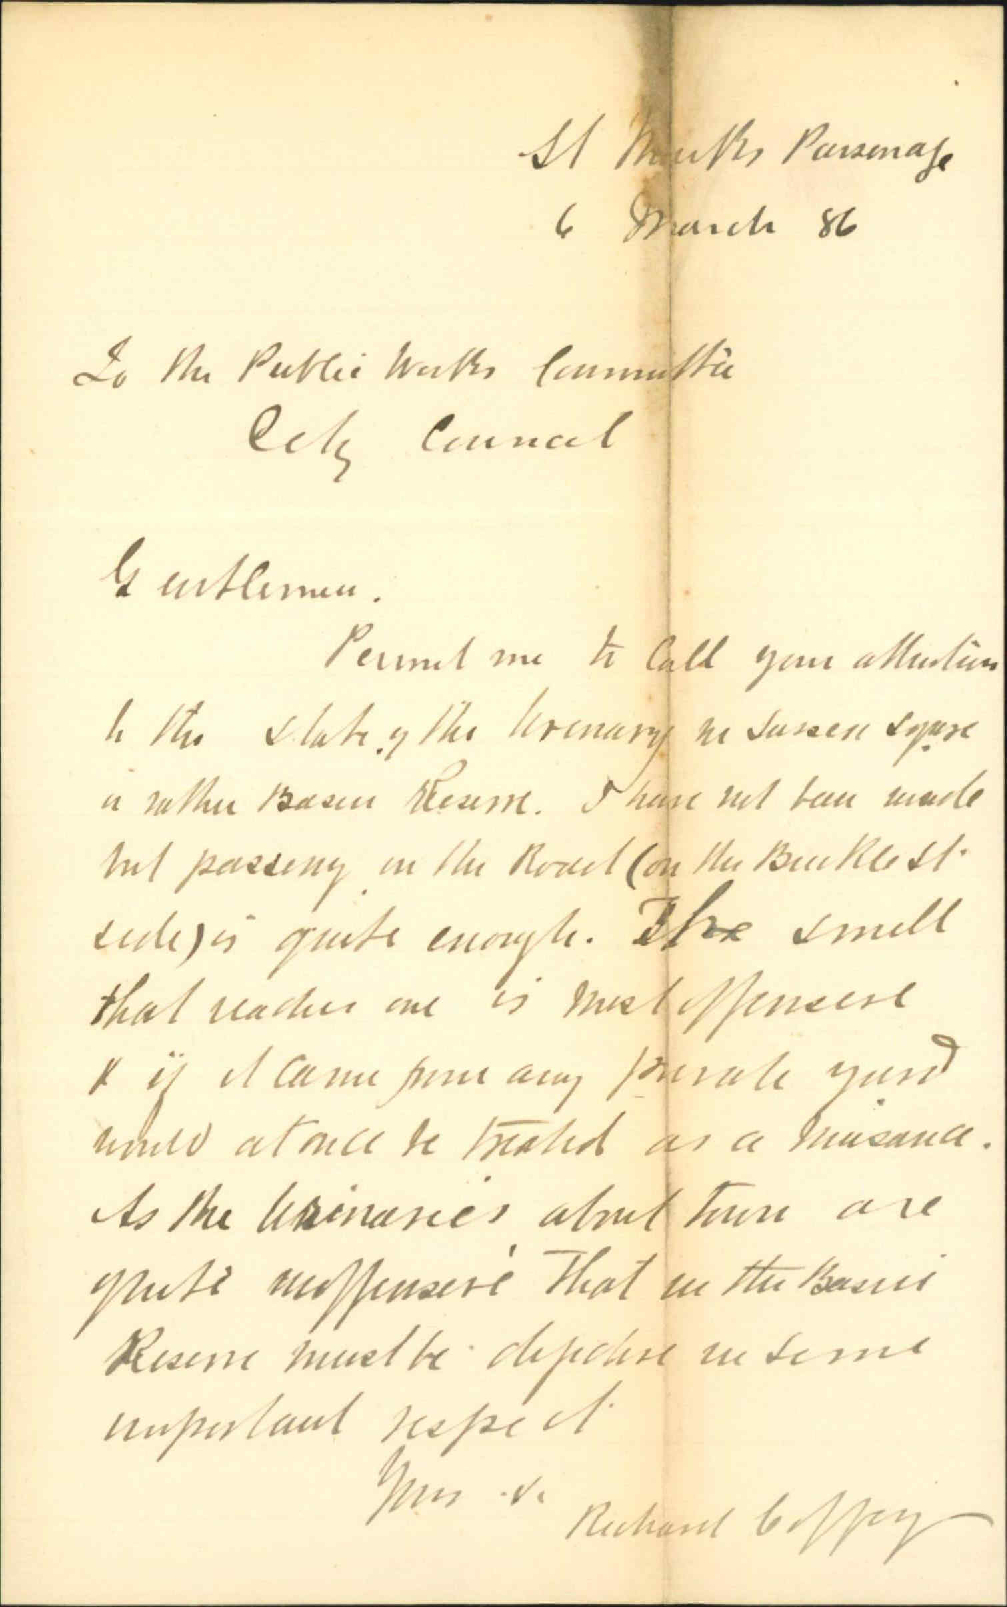 St Marks Parsonage
6 March 86
To the Public Works Committee
City Council
Gentlemen.
Permit me to Call your attention
to the state of the Urenary in Sussex Square
or rather Basin Reserve. I have not been inside
but passing on the Road (on the Buckle St
side) is quite enough. The smell
that reaches one is most offensive
& if it came from any private yard
would at once be treated as a Nuisance.
As the Urinaries about town are
quite inoffensive that in the Basin
Reserve must be defective in some
important respect
Yours &c
Richard Coffey